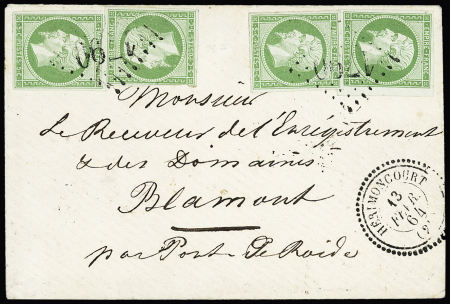 Monsieur
Le Receveur de l'Enrégistrement
& des Domaines
Blamont
par Pont-de-Roide
HÉRIMONCOURT
13
FEVR.
64